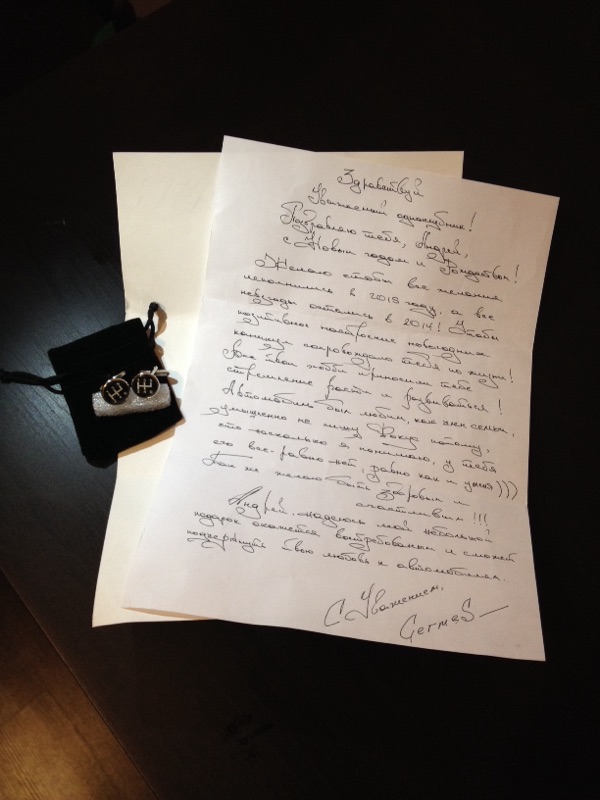 Здравствуй
Уважаемый одноклубник!
Поздравляю тебя, Андрей,
с Новым годом и Рождеством!
Желаю чтобы все желания
исполнились в 2015 году, а все
невзгоды остались в 2014! Чтобы
позитивное настроение новогодних
каникул сопровождало тебя по жизни!
твои хобби приносили тебе
стремление расти и развиваться!
Автомобиль был любим, как член семьи,
умышленно не пишу Фокус потому,
что насколько я понимаю, у тебя
его все-равно нет, равно как и у меня)))
Так же желаю быть здоровым и
счастливым!!!
Андрей, надеюсь мой небольшой
подарок окажется востребованным и сможет
подчеркнуть твою любовь к автомобилям.
С Уважением,